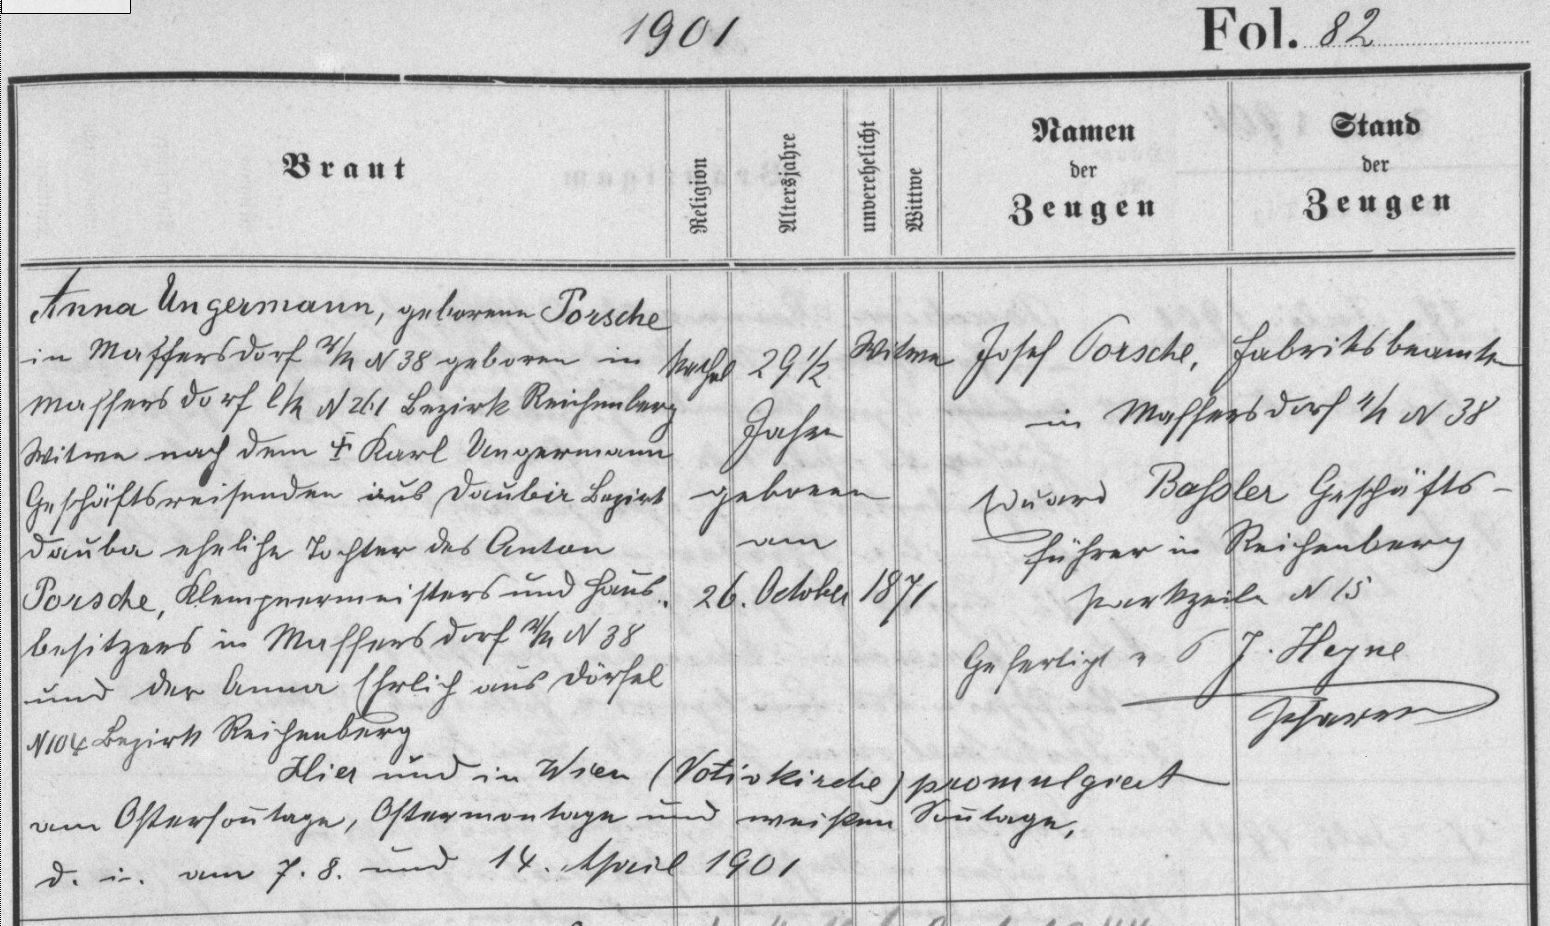 1901
Fol. 82
Braut
Religion
Altersjahre
unverehelicht
Wittwe
Namen
der
Zeugen
Stand
der
Zeugen
Anna Ungermann, geborene Porsche
in Maffersdorf N 38 geboren in
Maffersdorf N 261 Bezirk Reichenberg
Witwe nach dem Karl Ungermann
Geschäftsreisenden aus Bezirk
Dauba eheliche Tochter des Anton
Porsche, Klempnermeisters und Haus-
besitzers in Maffersdorf N 38
und der Anna Ehrlich aus Dörfel
N 104 Bezirk Reichenberg
Kathol
29 1/2
Jahre
geboren
am
26. October 1871
Witwe
Josef Porsche, Fabriksbeamte
in Maffersdorf N 38
Eduard Geschäfts-
führer in Reichenberg
Parkzeile N 15
Gefertigt P J. Heyne
Pfarrer
Hier und in Wien (Votivkirche) promulgiert
am Ostersoñtage, Ostermontage und weißen Soñtage,
d. i. am 7. 8. und 14. April 1901